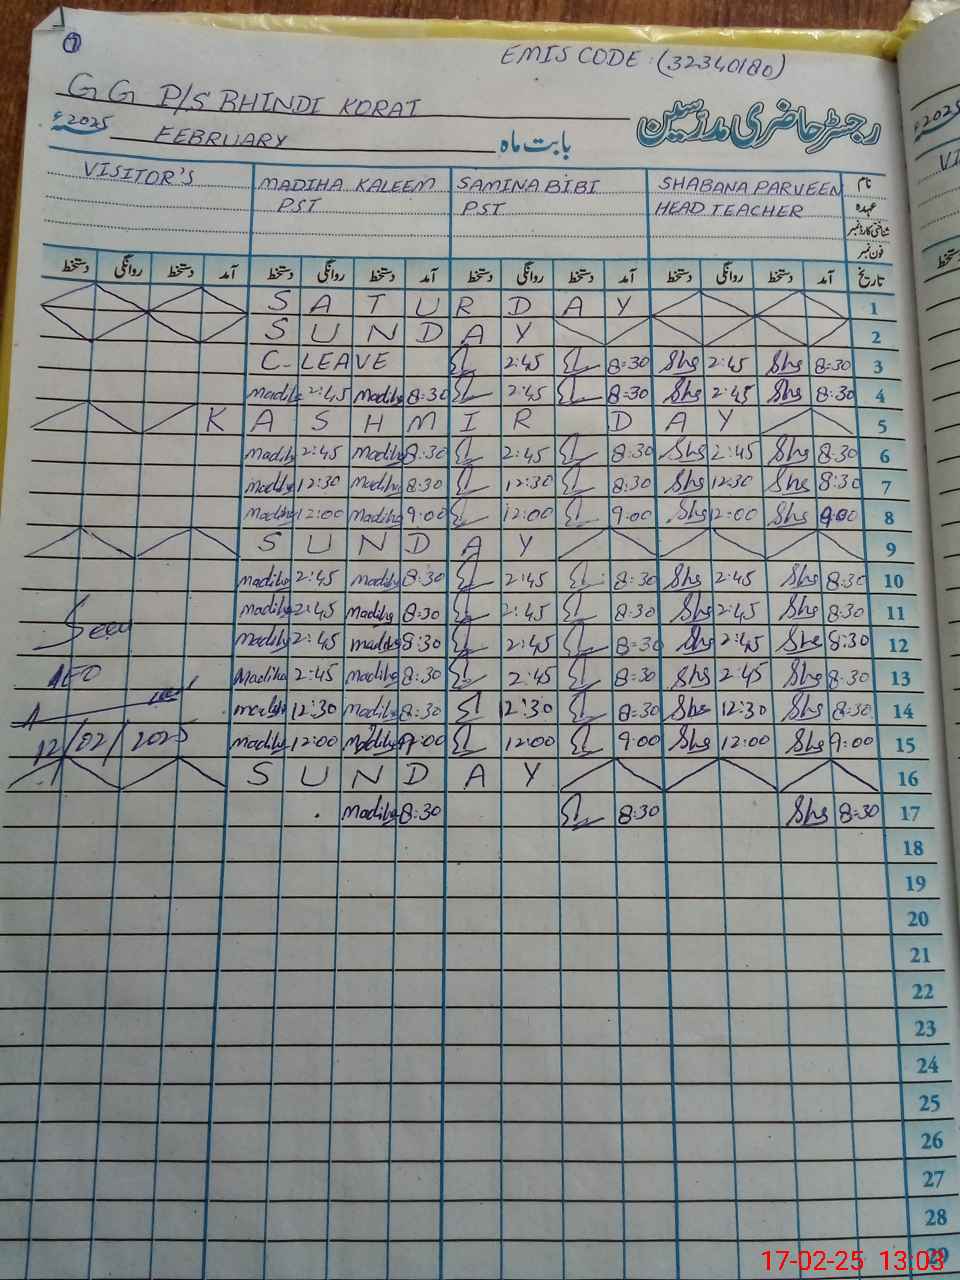 1
EMIS CODE:(32340180)
GG P/S BHINDI KORAI
رجسٹر حاضری مدرسین
2025ء EEBRUARY بابت ماہ
VISITOR'S MADIHA KALEEM SAMINA BIBI SHABANA PARVEEN نام
PST PST HEAD TEACHER عہدہ
شناختی کارڈ نمبر
فون نمبر
دستخط روانگی دستخط آمد دستخط روانگی دستخط آمد دستخط روانگی دستخط آمد دستخط روانگی دستخط آمد تاریخ
SATURDAY 1
SUNDAY 2
C-LEAVE 2:45 8:30 Shg 2:45 Shg 8:30 3
Madiha 2:45 Madiha 8:30 2:45 8:30 Shg 2:45 Shg 8:30 4
KASHMIR DAY 5
Madiha 2:45 Madiha 8:30 2:45 8:30 Shg 2:45 Shg 8:30 6
Madiha 12:30 Madiha 8:30 12:30 8:30 Shg 12:30 Shg 8:30 7
Madiha 12:00 Madiha 9:00 12:00 9:00 Shg 12:00 Shg 9:00 8
SUNDAY 9
Madiha 2:45 Madiha 8:30 2:45 8:30 Shg 2:45 Shg 8:30 10
Madiha 2:45 Madiha 8:30 2:45 8:30 Shg 2:45 Shg 8:30 11
Seen Madiha 2:45 Madiha 8:30 2:45 8:30 Shg 2:45 Shg 8:30 12
AEO Madiha 2:45 Madiha 8:30 2:45 8:30 Shg 2:45 Shg 8:30 13
Madiha 12:30 Madiha 8:30 12:30 8:30 Shg 12:30 Shg 8:30 14
12/02/2025 Madiha 12:00 Madiha 9:00 12:00 9:00 Shg 12:00 Shg 9:00 15
SUNDAY 16
Madiha 8:30 8:30 Shg 8:30 17
18
19
20
21
22
23
24
25
26
27
28
29
17-02-25 13:03